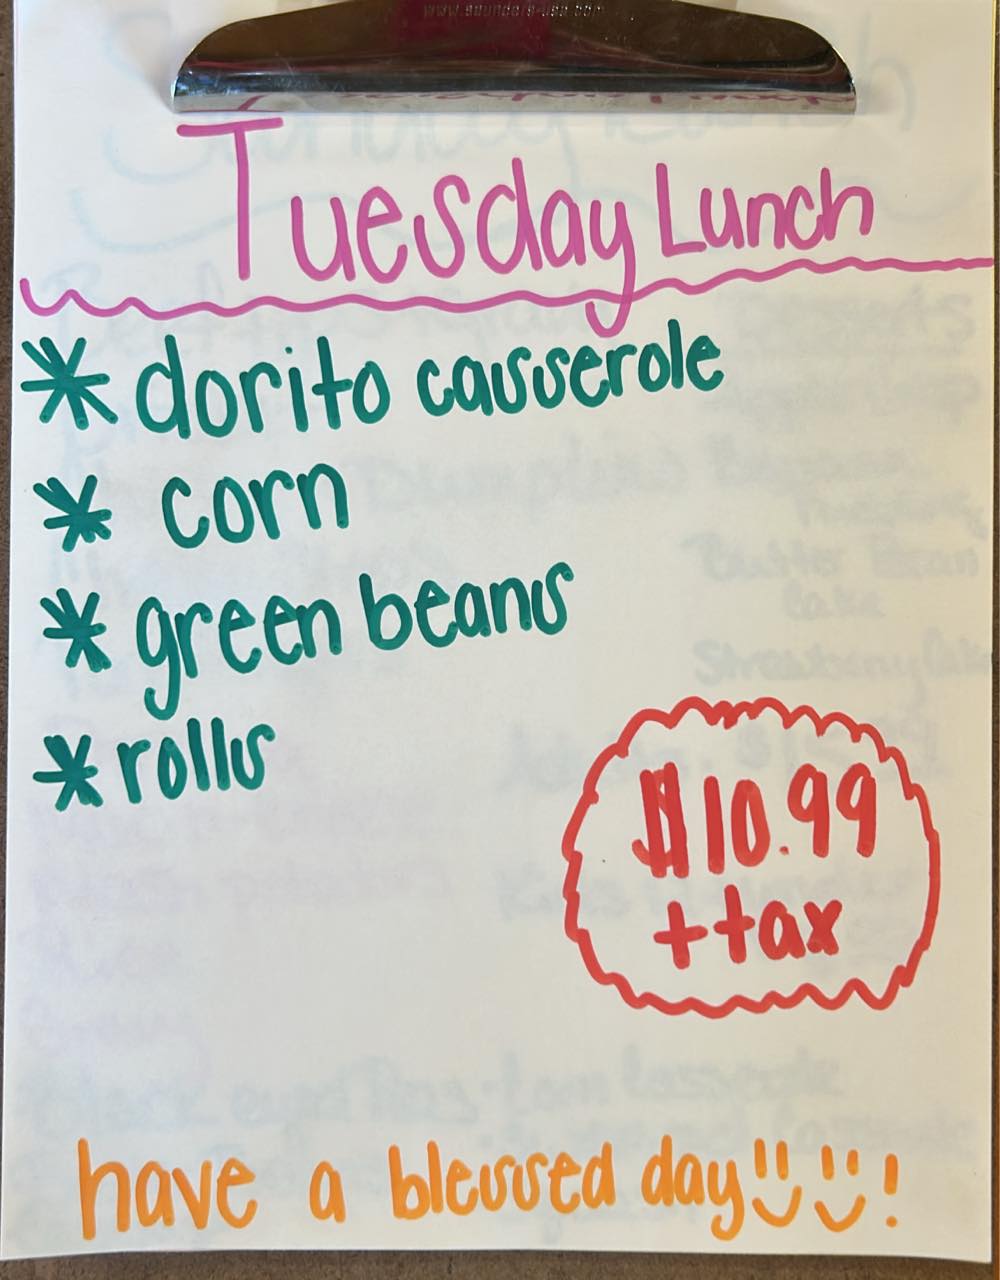 Tuesday Lunch
* dorito casserole
* corn
* green beans
* rolls
$10.99
+ tax
have a blessed day!